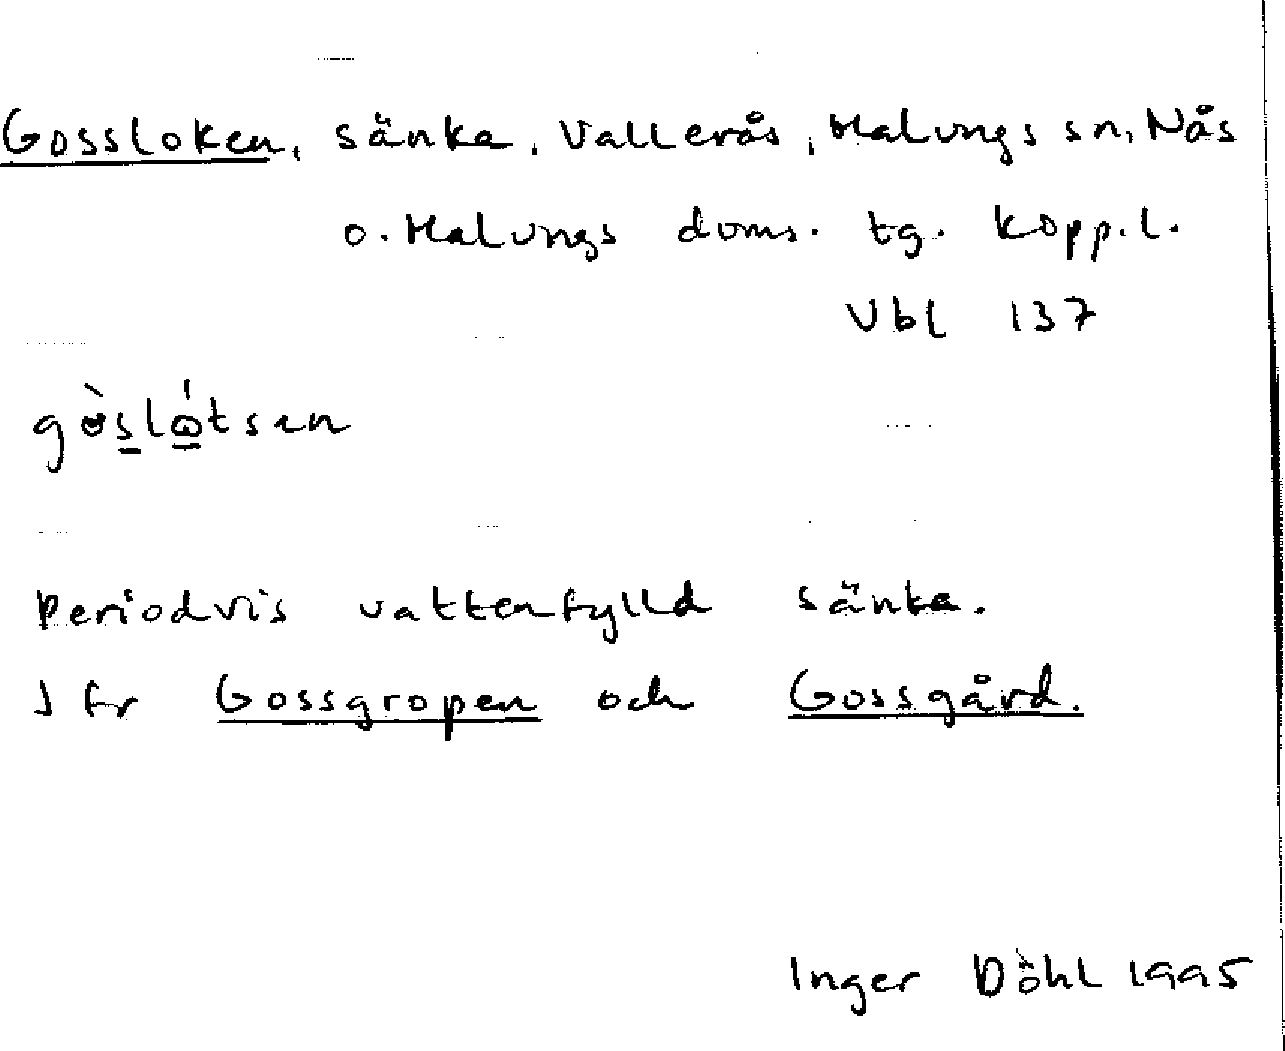 Gossloken, sänka, Vallerås, Malungs sn, Nås
o. Malungs doms. tg. Kopp.l.
Vbl 137
Periodvis vattenfylld sänka.
Jfr Gossgropen och Gossgård.
Inger Döhl 1995